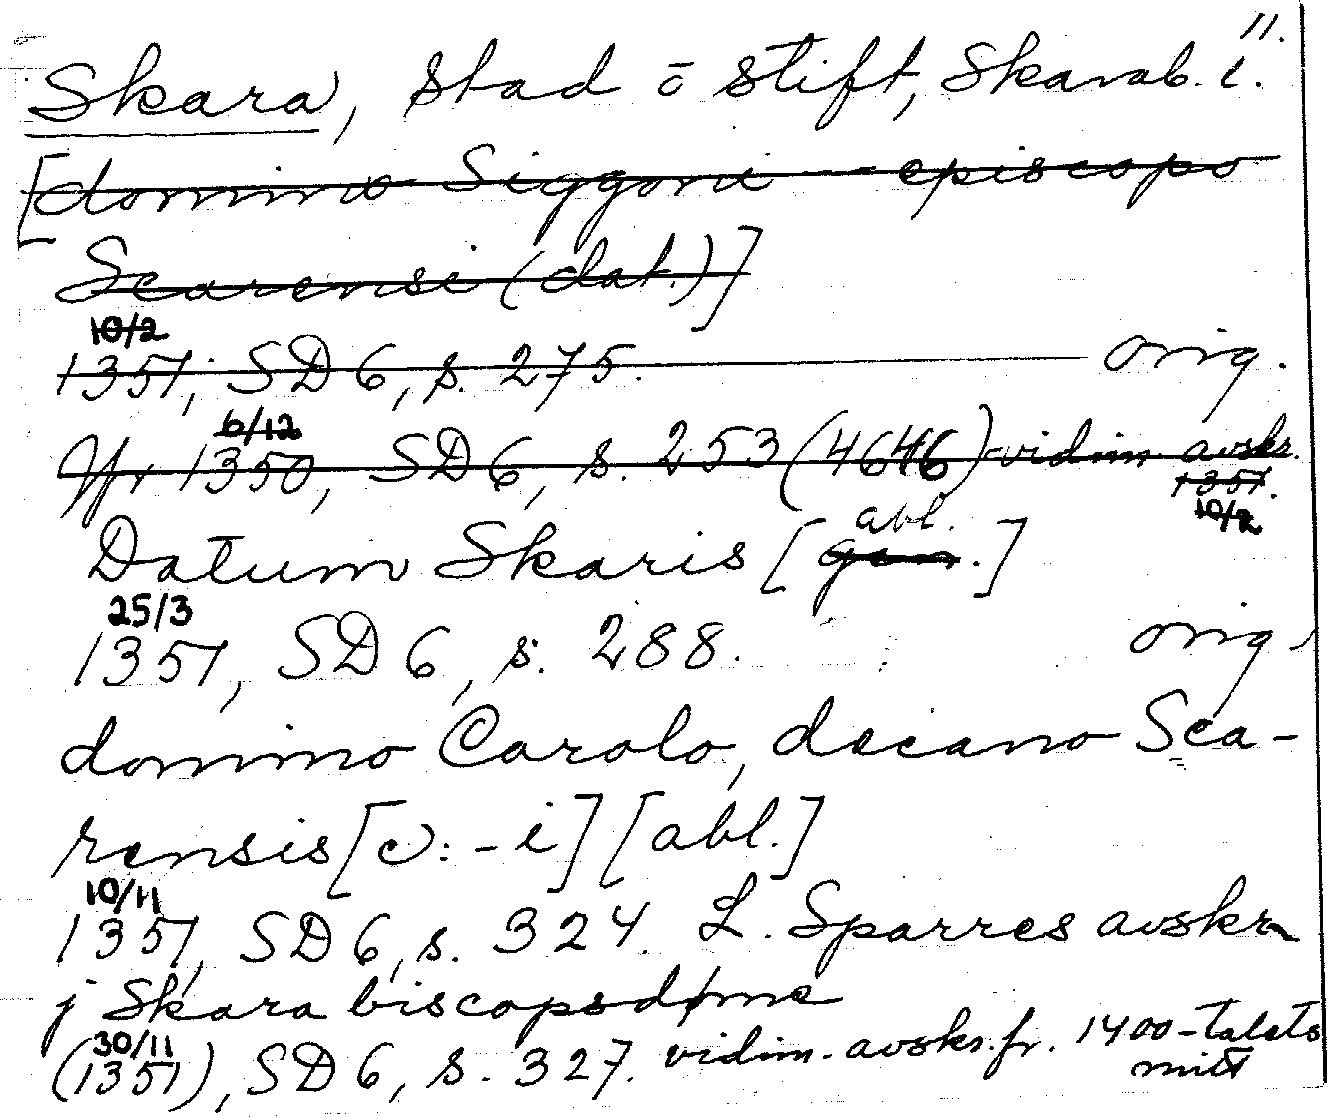 11.
Skara, stad o stift, Skarab. l.
[domino Siggoni - episcopo
Scarensi (dat.)]
10/2
1351, SD 6, s. 275. orig.
6/12
Jfr 1350, SD 6, s. 253 (4646) vidim avskr.
1351.
10/2
abl.
Datum Skaris [gen.]
25/3
1351, SD 6, s. 288. orig.
domino Carolo, decano Sca-
rensis [ɔ: -i] [abl.]
10/11
1351, SD 6, s. 324. L. Sparres avskr.
j Skara biscopsdøme
30/11
(1351), SD 6, s. 327. vidim. avskr. fr. 1400-talets
mitt